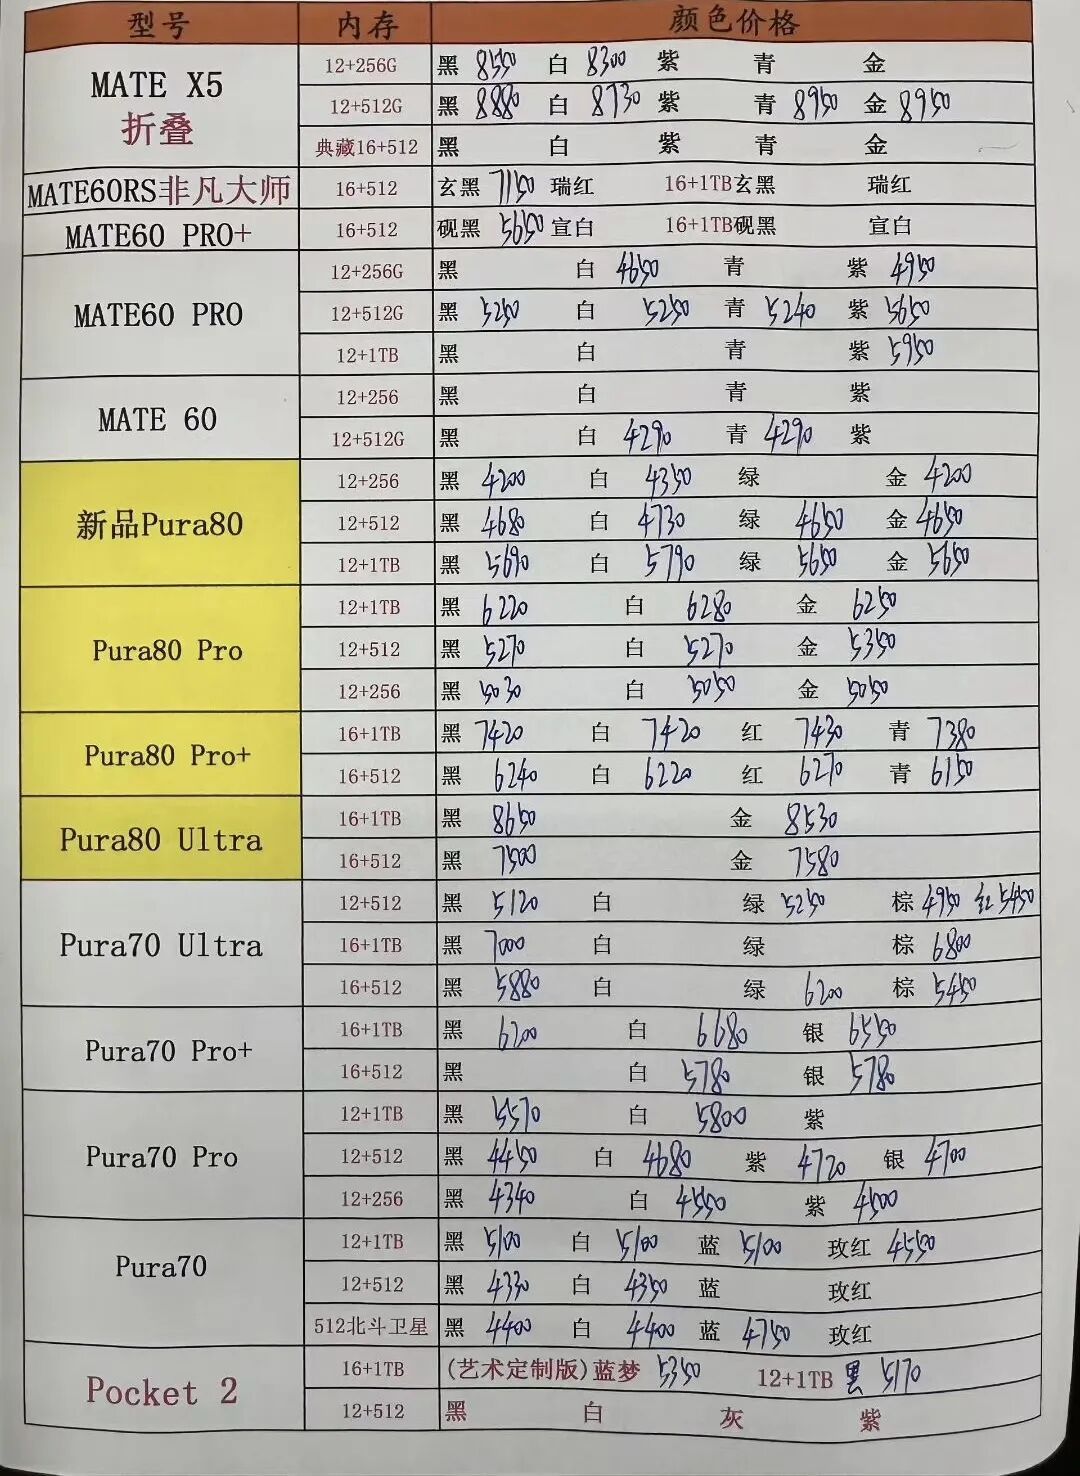 型号 内存 颜色价格
MATE X5 折叠
12+256G 黑 8550 白 8300 紫 青 金
12+512G 黑 8880 白 8730 紫 青 8950 金 8950
典藏16+512 黑 白 紫 青 金
MATE60RS非凡大师 16+512 玄黑 7150 瑞红 16+1TB玄黑 瑞红
MATE60 PRO+ 16+512 砚黑 5650 宣白 16+1TB砚黑 宣白
MATE60 PRO
12+256G 黑 白 4650 青 紫 4950
12+512G 黑 5250 白 5250 青 5240 紫 5650
12+1TB 黑 白 青 紫 5950
MATE 60
12+256 黑 白 青 紫
12+512G 黑 白 4290 青 4290 紫
新品Pura80
12+256 黑 4200 白 4350 绿 金 4200
12+512 黑 4680 白 4730 绿 4650 金 4650
12+1TB 黑 5690 白 5790 绿 5650 金 5650
Pura80 Pro
12+1TB 黑 6220 白 6280 金 6250
12+512 黑 5270 白 5270 金 5350
12+256 黑 5030 白 5050 金 5050
Pura80 Pro+
16+1TB 黑 7420 白 7420 红 7430 青 7380
16+512 黑 6240 白 6220 红 6270 青 6150
Pura80 Ultra
16+1TB 黑 8650 金 8530
16+512 黑 7500 金 7580
Pura70 Ultra
12+512 黑 5120 白 绿 5250 棕 4950 红 5450
16+1TB 黑 7000 白 绿 棕 6800
16+512 黑 5880 白 绿 6200 棕 5450
Pura70 Pro+
16+1TB 黑 6200 白 6680 银 6550
16+512 黑 白 5780 银 5780
Pura70 Pro
12+1TB 黑 5570 白 5800 紫
12+512 黑 4450 白 4680 紫 4720 银 4700
12+256 黑 4340 白 4550 紫 4500
Pura70
12+1TB 黑 5100 白 5100 蓝 5100 玫红 4550
12+512 黑 4330 白 4350 蓝 玫红
512北斗卫星 黑 4400 白 4400 蓝 4750 玫红
Pocket 2
16+1TB (艺术定制版)蓝梦 5350 12+1TB 黑 5170
12+512 黑 白 灰 紫